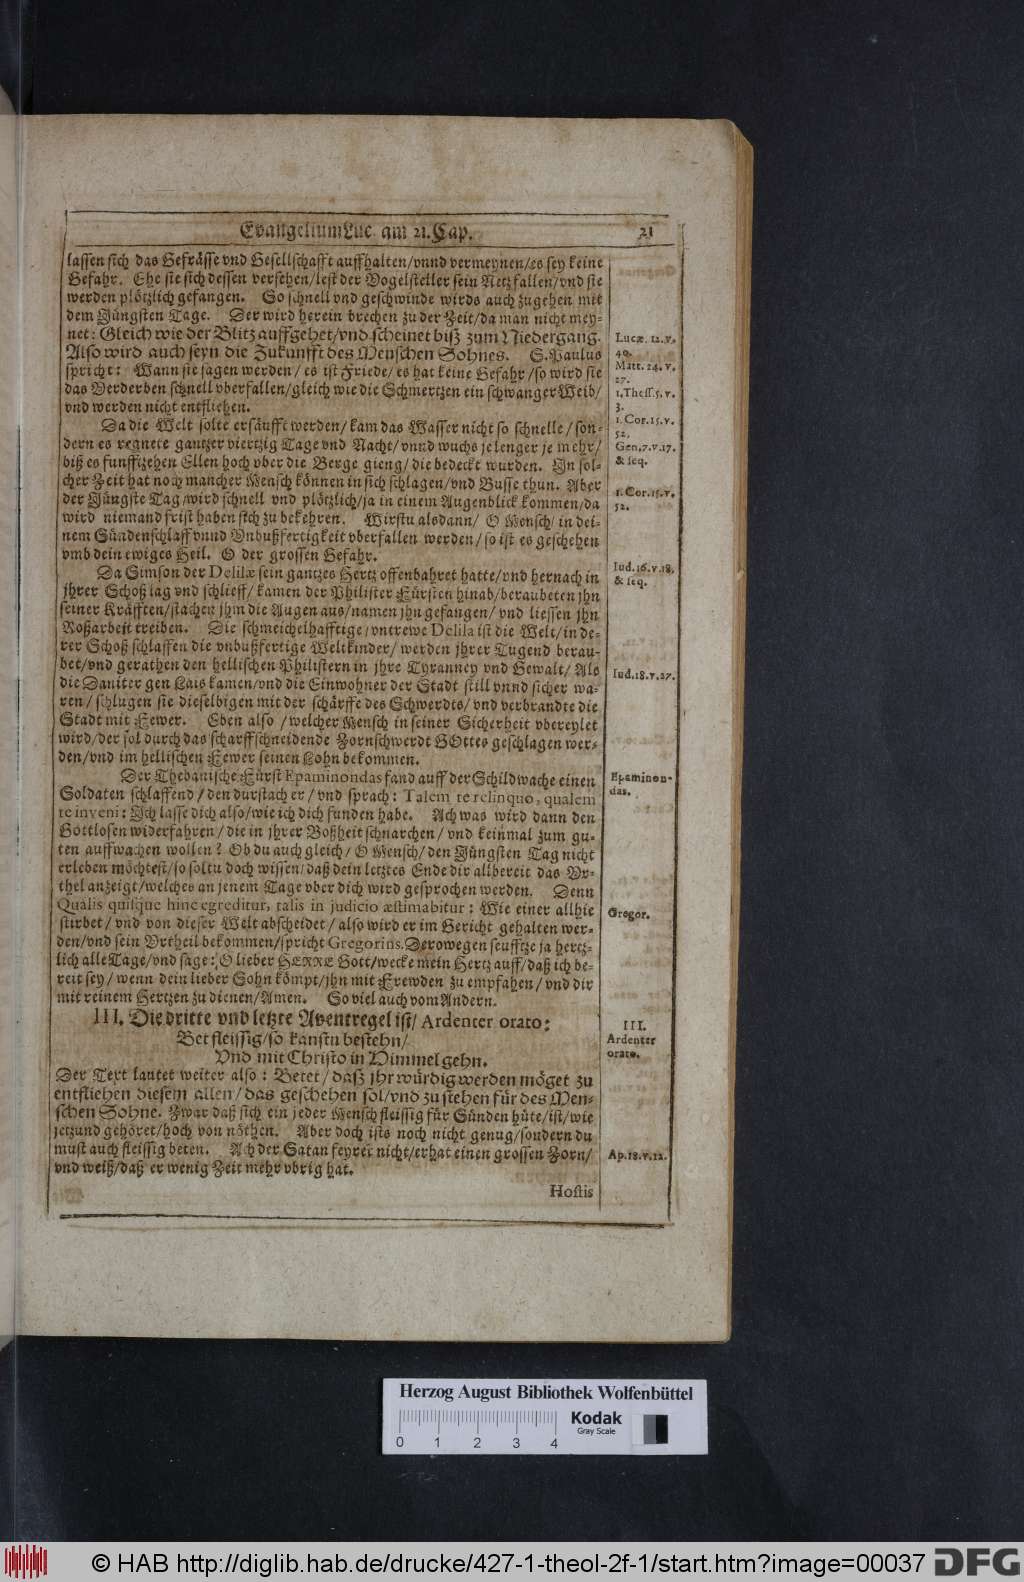 Evangelium Luc. am 21. Cap.
21
lassen sich das Gefrässe vnd Gesellschafft auffhalten/vnnd vermeynen/es sey keine
Gefahr. Ehe sie sich dessen versehen/lest der Vogelsteller sein Netz fallen/vnd sie
werden plötzlich gefangen. So schnell vnd geschwinde wirds auch zugehen mit
dem Jüngsten Tage. Der wird herein brechen zu der Zeit/da man nicht mey-
net: Gleich wie der Blitz auffgehet/vnd scheinet biß zum Niedergang.
Also wird auch seyn die Zukunfft des Menschen Sohnes. S. Paulus
spricht: Wann sie sagen werden/ es ist Friede/es hat keine Gefahr/so wird sie
das Verderben schnell vberfallen/gleich wie die Schmertzen ein schwanger Weib/
vnd werden nicht entfliehen.
Da die Welt solte ersäufft werden/ kam das Wasser nicht so schnelle/son-
dern es regnete gantzer viertzig Tage vnd Nacht/vnnd wuchs je lenger je mehr/
biß es funffzehen Ellen hoch vber die Berge gieng/die bedeckt wurden. In sol-
cher Zeit hat noch mancher Mensch können in sich schlagen/vnd Busse thun. Aber
der Jüngste Tag/wird schnell vnd plötzlich/ja in einem Augenblick kommen/da
wird niemand frist haben sich zu bekehren. Wirstu alsdann/ O Mensch/ in dei-
nem Sündenschlaff vnnd Vnbußfertigkeit vberfallen werden/so ist es geschehen
vmb dein ewiges Heil. O der grossen Gefahr.
Da Simson der Delilæ sein gantzes Hertz offenbahret hatte/vnd hernach in
jhrer Schoß lag vnd schlieff/ kamen der Philister Fürsten hinab/beraubeten jhn
seiner Kräfften/stachen jhm die Augen aus/namen jhn gefangen/ vnd liessen jhn
Roßarbeit treiben. Die schmeichelhafftige/vntrewe Delila ist die Welt/in de-
rer Schoß schlaffen die vnbußfertige Weltkinder/ werden jhrer Tugend berau-
bet/vnd gerathen den hellischen Philistern in jhre Tyranney vnd Gewalt/ Als
die Daniter gen Lais kamen/vnd die Einwohner der Stadt still vnnd sicher wa-
ren/ schlugen sie dieselbigen mit der schärffe des Schwerdts/ vnd verbrandte die
Stadt mit Fewer. Eben also /welcher Mensch in seiner Sicherheit vbereylet
wird/der sol durch das scharffschneidende Zornschwerdt GOttes geschlagen wer-
den/vnd im hellischen Fewer seinen Lohn bekommen.
Der Thebanische Fürst Epaminondas fand auff der Schildwache einen
Soldaten schlaffend/den durstach er/vnd sprach: Talem te relinquo, qualem
te inveni: Ich lasse dich also/wie ich dich funden habe. Ach was wird dann den
Gottlosen widerfahren/die in jhrer Boßheit schnarchen/ vnd keinmal zum gu-
ten auffwachen wollen? Ob du auch gleich/ O Mensch/ den Jüngsten Tag nicht
erleben möchtest/so soltu doch wissen/daß dein letztes Ende dir allbereit das Vr-
thel anzeigt/welches an jenem Tage vber dich wird gesprochen werden. Denn
Qualis quisque hinc egreditur, talis in judicio æstimabitur: Wie einer allhie
stirbet/ vnd von dieser Welt abscheidet/also wird er im Gericht gehalten wer-
den/vnd sein Vrtheil bekommen/spricht Gregorius. Derowegen seufftze ja hertz-
lich alle Tage/vnd sage: O lieber HERRE Gott/wecke mein Hertz auff/daß ich be-
reit sey/ wenn dein lieber Sohn kömpt/jhn mit Frewden zu empfahen/vnd dir
mit reinem Hertzen zu dienen/Amen. So viel auch vom Andern.
III. Die dritte vnd letzte Aventregel ist/ Ardenter orato:
Bet fleissig/so kanstu bestehn/
Vnd mit Christo in Himmel gehn.
Der Text lautet weiter also: Betet/daß jhr würdig werden möget zu
entfliehen diesem allen/das geschehen sol/vnd zu stehen für des Men-
schen Sohne. Zwar daß sich ein jeder Mensch fleissig für Sünden hüte/ist/wie
jetzund gehöret/hoch von nöthen. Aber doch ists noch nicht genug/sondern du
must auch fleissig beten. Ach der Satan feyret nicht/er hat einen grossen Zorn/
vnd weiß/daß er wenig Zeit mehr vbrig hat.
Hostis
Lucæ. 12. v.
40.
Matt. 24. v.
27.
1. Thess. 5. v.
3.
1. Cor. 15. v.
52.
Gen. 7. v. 17.
& seq.
1. Cor. 15. v.
52.
Iud. 16. v. 18.
& seq.
Iud. 18. v. 27.
Epaminon-
das.
Gregor.
III.
Ardenter
orato.
Ap. 18. v. 12.
Herzog August Bibliothek Wolfenbüttel
Kodak
Gray Scale
0 1 2 3 4
© HAB http://diglib.hab.de/drucke/427-1-theol-2f-1/start.htm?image=00037
DFG